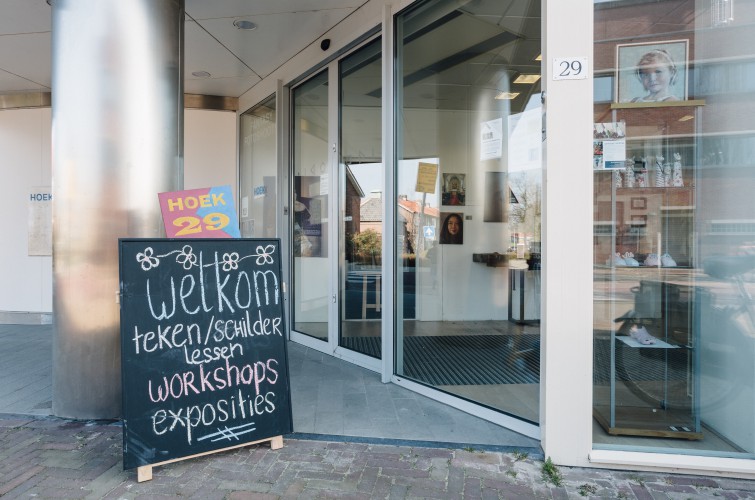 HOEK
29
welkom
teken/SCHilDER
lessen
WORKSHOPS
exposities
29
HOEK